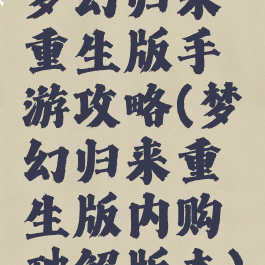 梦幻归来
重生版手
游攻略(梦
幻归来重
生版内购
破解版本)